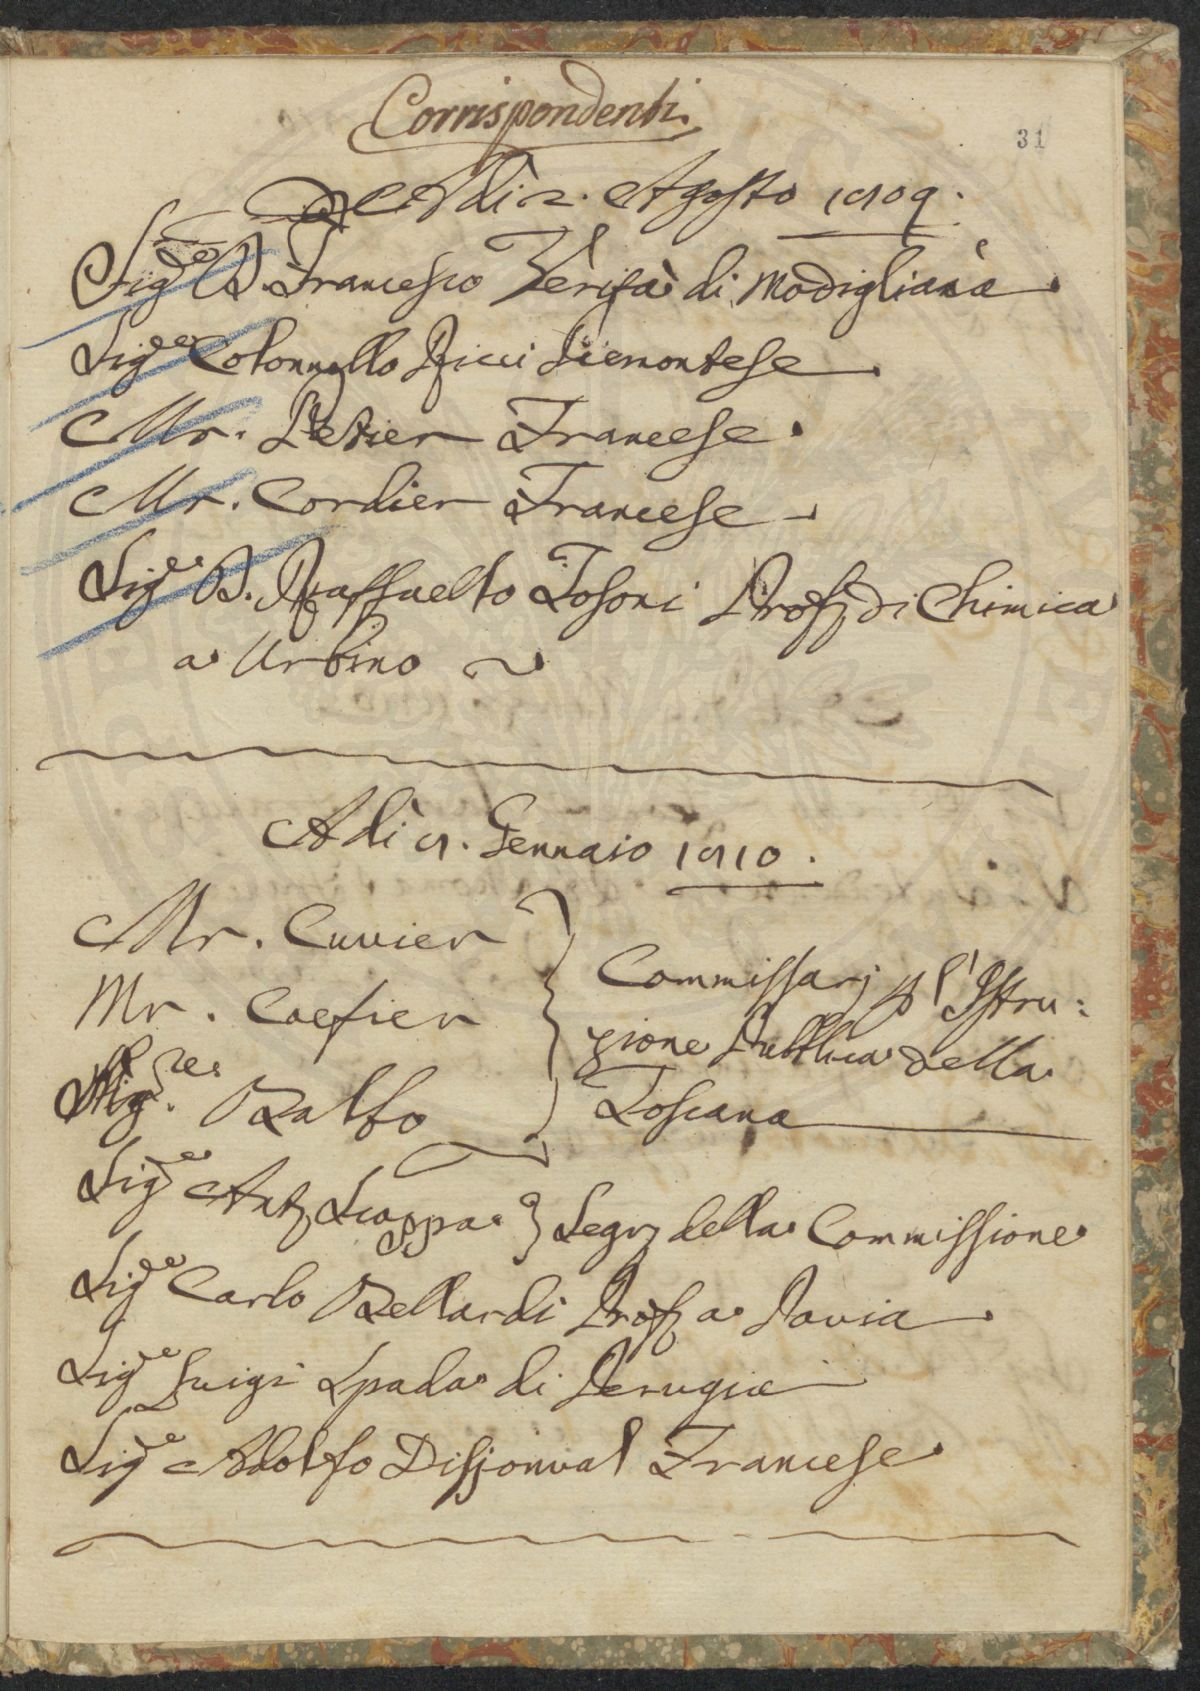 Corrispondenti.
31
Adì 2. Agosto 1809.
Sig.re D. Francesco Verità di Modigliana
Sig.re Colonnello Ricci Piemontese
Mr. Petier Francese.
Mr. Cordier Francese
Sig.re D. Raffaello Tosoni Prof. di Chimica
a Urbino
Adì 8. Gennaio 1810.
Mr. Cuvier
Mr. Coefier
Sig.re Balbo
Commissarj p l'Istru:
zione Pubblica della
Toscana
Sig.re Ant. Scoppa Segr. della Commissione
Sig.re Carlo Bellardi Prof. a Pavia
Sig.re Luigi Spada di Perugia
Sig.re Adolfo Disjonval Francese